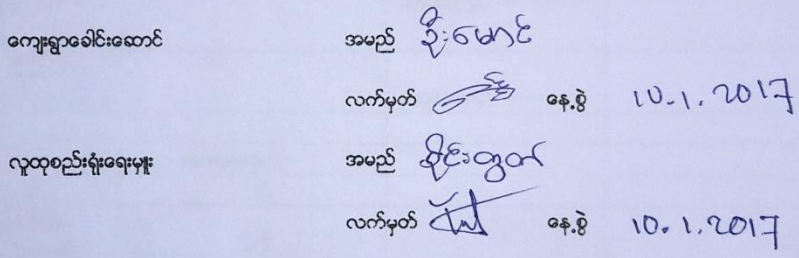 ကျေးရွာခေါင်းဆောင် အမည် ဦးမောင်
လက်မှတ် နေ့စွဲ 10.1.2017
လူထုစည်းရုံးရေးမှူး အမည် စိုင်းထွတ်
လက်မှတ် နေ့စွဲ 10.1.2017